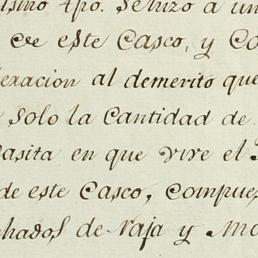 mismo tpo. se hizo a un
de este Casco, y Co
lexacion al demerito que
solo la Cantidad de
asita en que vive el
de este Casco, Compues
chados de raja y mo